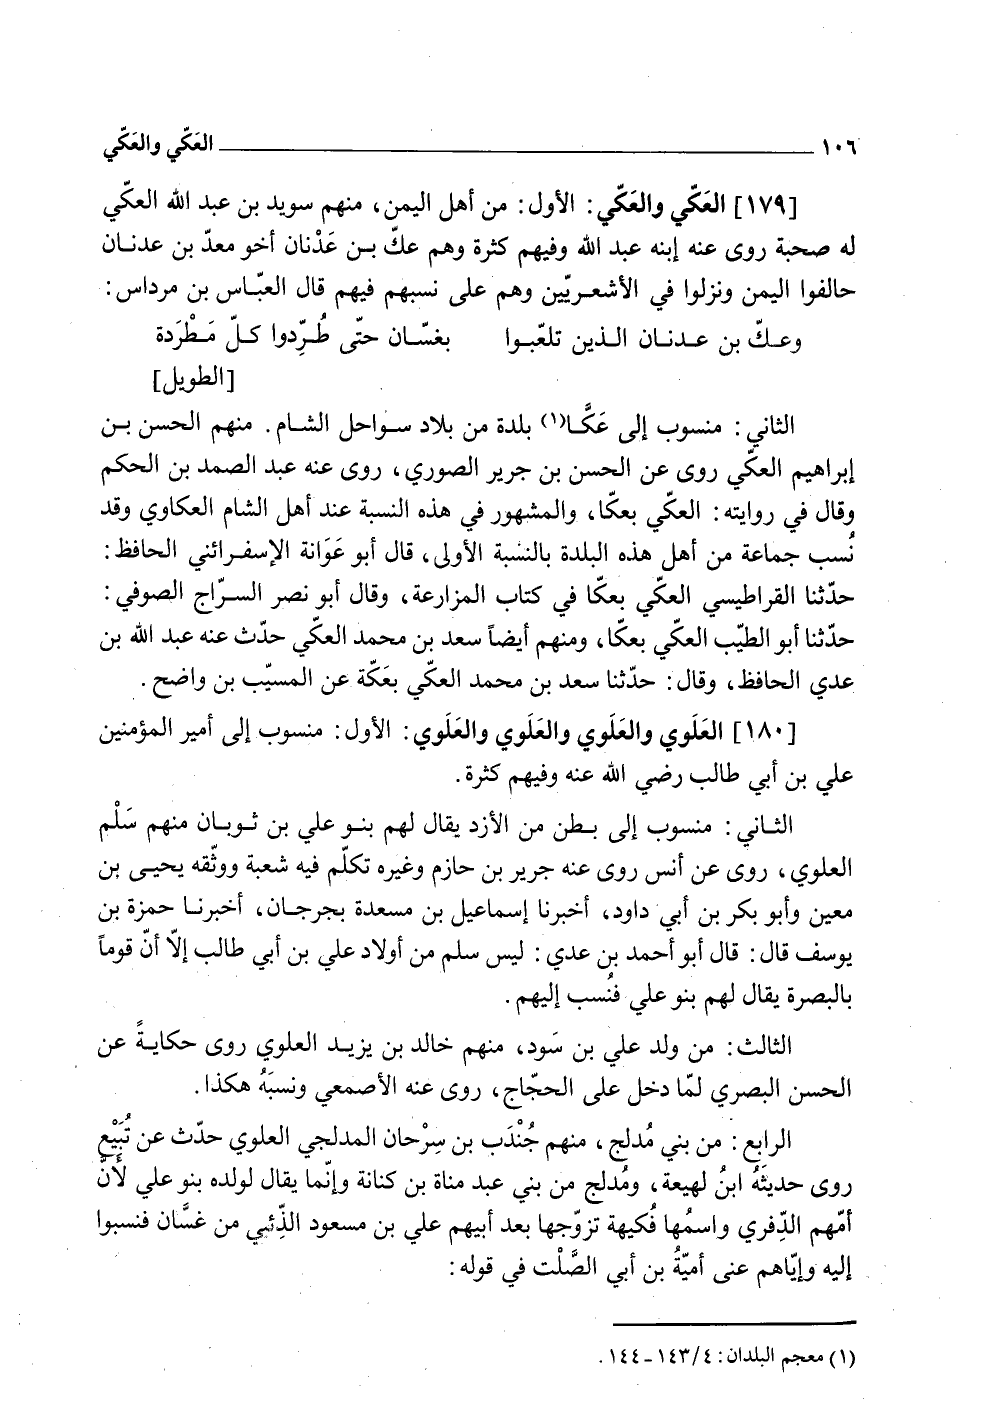 ١٠٦ العَكّي والعَكّي
[١٧٩] العَكّي والعَكّي: الأول: من أهل اليمن، منهم سويد بن عبد الله العكّي
له صحبة روى عنه إبنه عبد الله وفيهم كثرة وهم عكّ بن عَدْنان أخو معدّ بن عدنان
حالفوا اليمن ونزلوا في الأشعريّين وهم على نسبهم فيهم قال العبّاس بن مرداس:
وعكّ بن عدنان الذين تلعّبوا بغسّان حتّى طُرِّدوا كلّ مَطْرَدة
[الطويل]
الثاني: منسوب إلى عَكَّا(١) بلدة من بلاد سواحل الشام. منهم الحسن بن
إبراهيم العكّي روى عن الحسن بن جرير الصوري، روى عنه عبد الصمد بن الحكم
وقال في روايته: العكّي بعكّا، والمشهور في هذه النسبة عند أهل الشام العكاوي وقد
نُسب جماعة من أهل هذه البلدة بالنسبة الأولى، قال أبو عَوَانة الإسفرائني الحافظ:
حدّثنا القراطيسي العكّي بعكّا في كتاب المزارعة، وقال أبو نصر السرّاج الصوفي:
حدّثنا أبو الطيّب العكّي بعكّا، ومنهم أيضاً سعد بن محمد العكّي حدّث عنه عبد الله بن
عدي الحافظ، وقال: حدّثنا سعد بن محمد العكّي بعَكّة عن المسيّب بن واضح.
[١٨٠] العَلَوي والعَلَوي والعَلَوي والعَلَوي: الأول: منسوب إلى أمير المؤمنين
علي بن أبي طالب رضي الله عنه وفيهم كثرة.
الثاني: منسوب إلى بطن من الأزد يقال لهم بنو علي بن ثوبان منهم سَلْم
العلوي، روى عن أنس روى عنه جرير بن حازم وغيره تكلّم فيه شعبة ووثّقه يحيى بن
معين وأبو بكر بن أبي داود، أخبرنا إسماعيل بن مسعدة بجرجان، أخبرنا حمزة بن
يوسف قال: قال أبو أحمد بن عدي: ليس سلم من أولاد علي بن أبي طالب إلاّ أنّ قوماً
بالبصرة يقال لهم بنو علي فنُسب إليهم.
الثالث: من ولد علي بن سَود، منهم خالد بن يزيد العلوي روى حكايةً عن
الحسن البصري لمّا دخل على الحجّاج، روى عنه الأصمعي ونسبَهُ هكذا.
الرابع: من بني مُدلج، منهم جُنْدَب بن سِرْحان المدلجي العلوي حدّث عن تُبَيْع
روى حديثَهُ ابنُ لهيعة، ومُدلج من بني عبد مناة بن كنانة وإنّما يقال لولده بنو علي لأنَّ
أمّهم الدِّفري واسمُها فُكيهة تزوّجها بعد أبيهم علي بن مسعود الذِّئبي من غسَّان فنسبوا
إليه وإيّاهم عنى أميّةُ بن أبي الصَّلْت في قوله:
(١) معجم البلدان: ٤/١٤٣-١٤٤.